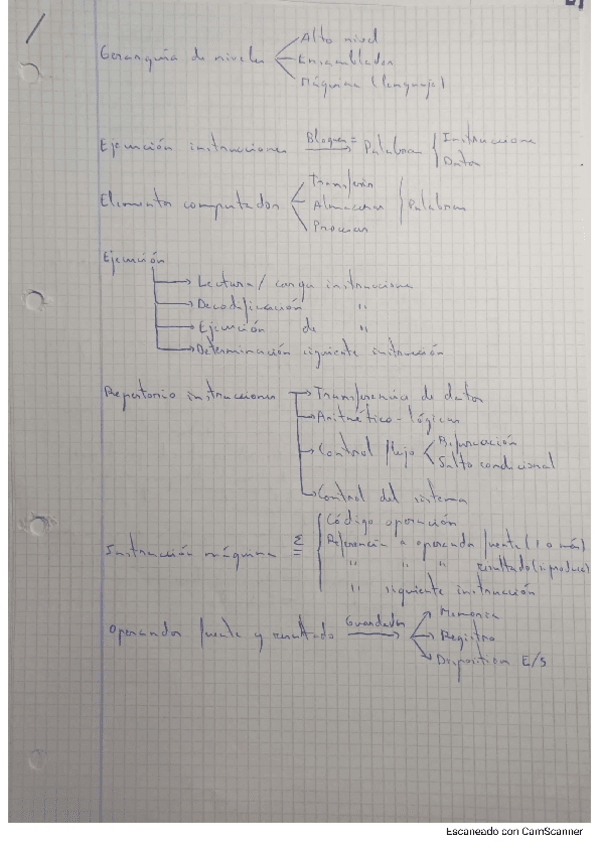 Gerarquía de niveles
Alto nivel
Ensamblador
Máquina (lenguaje)
Ejecución instrucciones
Bloques =
Palabras
Instrucciones
Datos
Elementos computador
Transferir
Almacenar
Procesar
Palabras
Ejecución
Lectura / carga instrucciones
Decodificación "
Ejecución de "
Determinación siguiente instrucción
Repertorio instrucciones
Transferencia de datos
Aritmético-lógicas
Control flujo
Bifurcación
Salto condicional
Control del sistema
Instrucción máquina
Código operación
Referencia a operando fuente (1 o más)
" " " resultado (si produce)
" siguiente instrucción
Operandos fuente y resultado
Guardados
Memoria
Registro
Dispositivo E/S
Escaneado con CamScanner